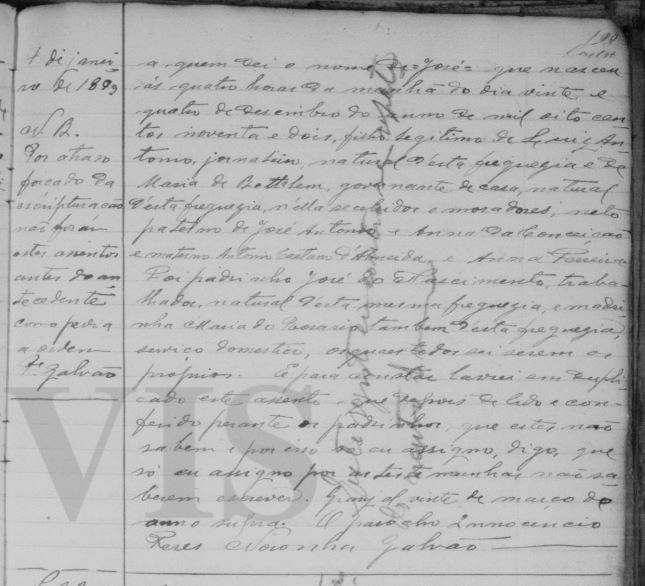 a quem dei o nome de =José= que nasceu
ás quatro horas da manhã do dia vinte e
quatro de desembro do anno de mil oito cen
tos noventa e dois, filho legitimo de Luis An
tonio, jornaleiro, natural d'esta freguezia e de
Maria de Bethlem, governante de casa, natural
d'esta freguezia, n'ella recebidos e moradores, neto
paterno de José Antonio e Anna da Conceição
e materno Antonio Caetano d'Almeida e Anna Ferreira
Foi padrinho José do Nascimento, traba
lhador, natural d'esta mesma freguezia, e madri
nha Maria do Rosario, tambem d'esta freguezia,
serviço domestico, os quaes todos sei serem os
proprios. E para constar lavrei em dupli
cado este assento que depois de lido e con
ferido perante os padrinhos, que estes não
sabem e por isso só eu assigno, digo, que
só eu assigno por as testemunhas não sa
berem escrever. vinte de março do
anno supra. O parocho Innocencio
Peres Noronha Galvão
de janei
ro de 1893
N. B.
Por atraso
forçado da
escripturação
não foram
estes assentos
antes do an
tecedente
como pedia
a ordem
P.e Galvão
VIS